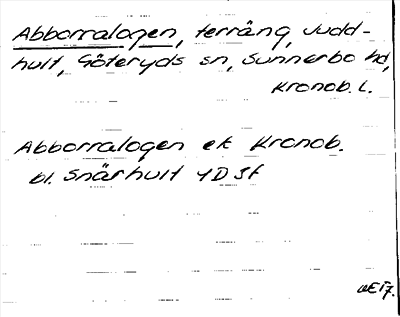 Abborralogen, terräng, Judd-
hult, Göteryds sn, Sunnerbo hd,
Kronob. l.
Abborralogen ek Kronob.
bl. Snärhult 4D 5f